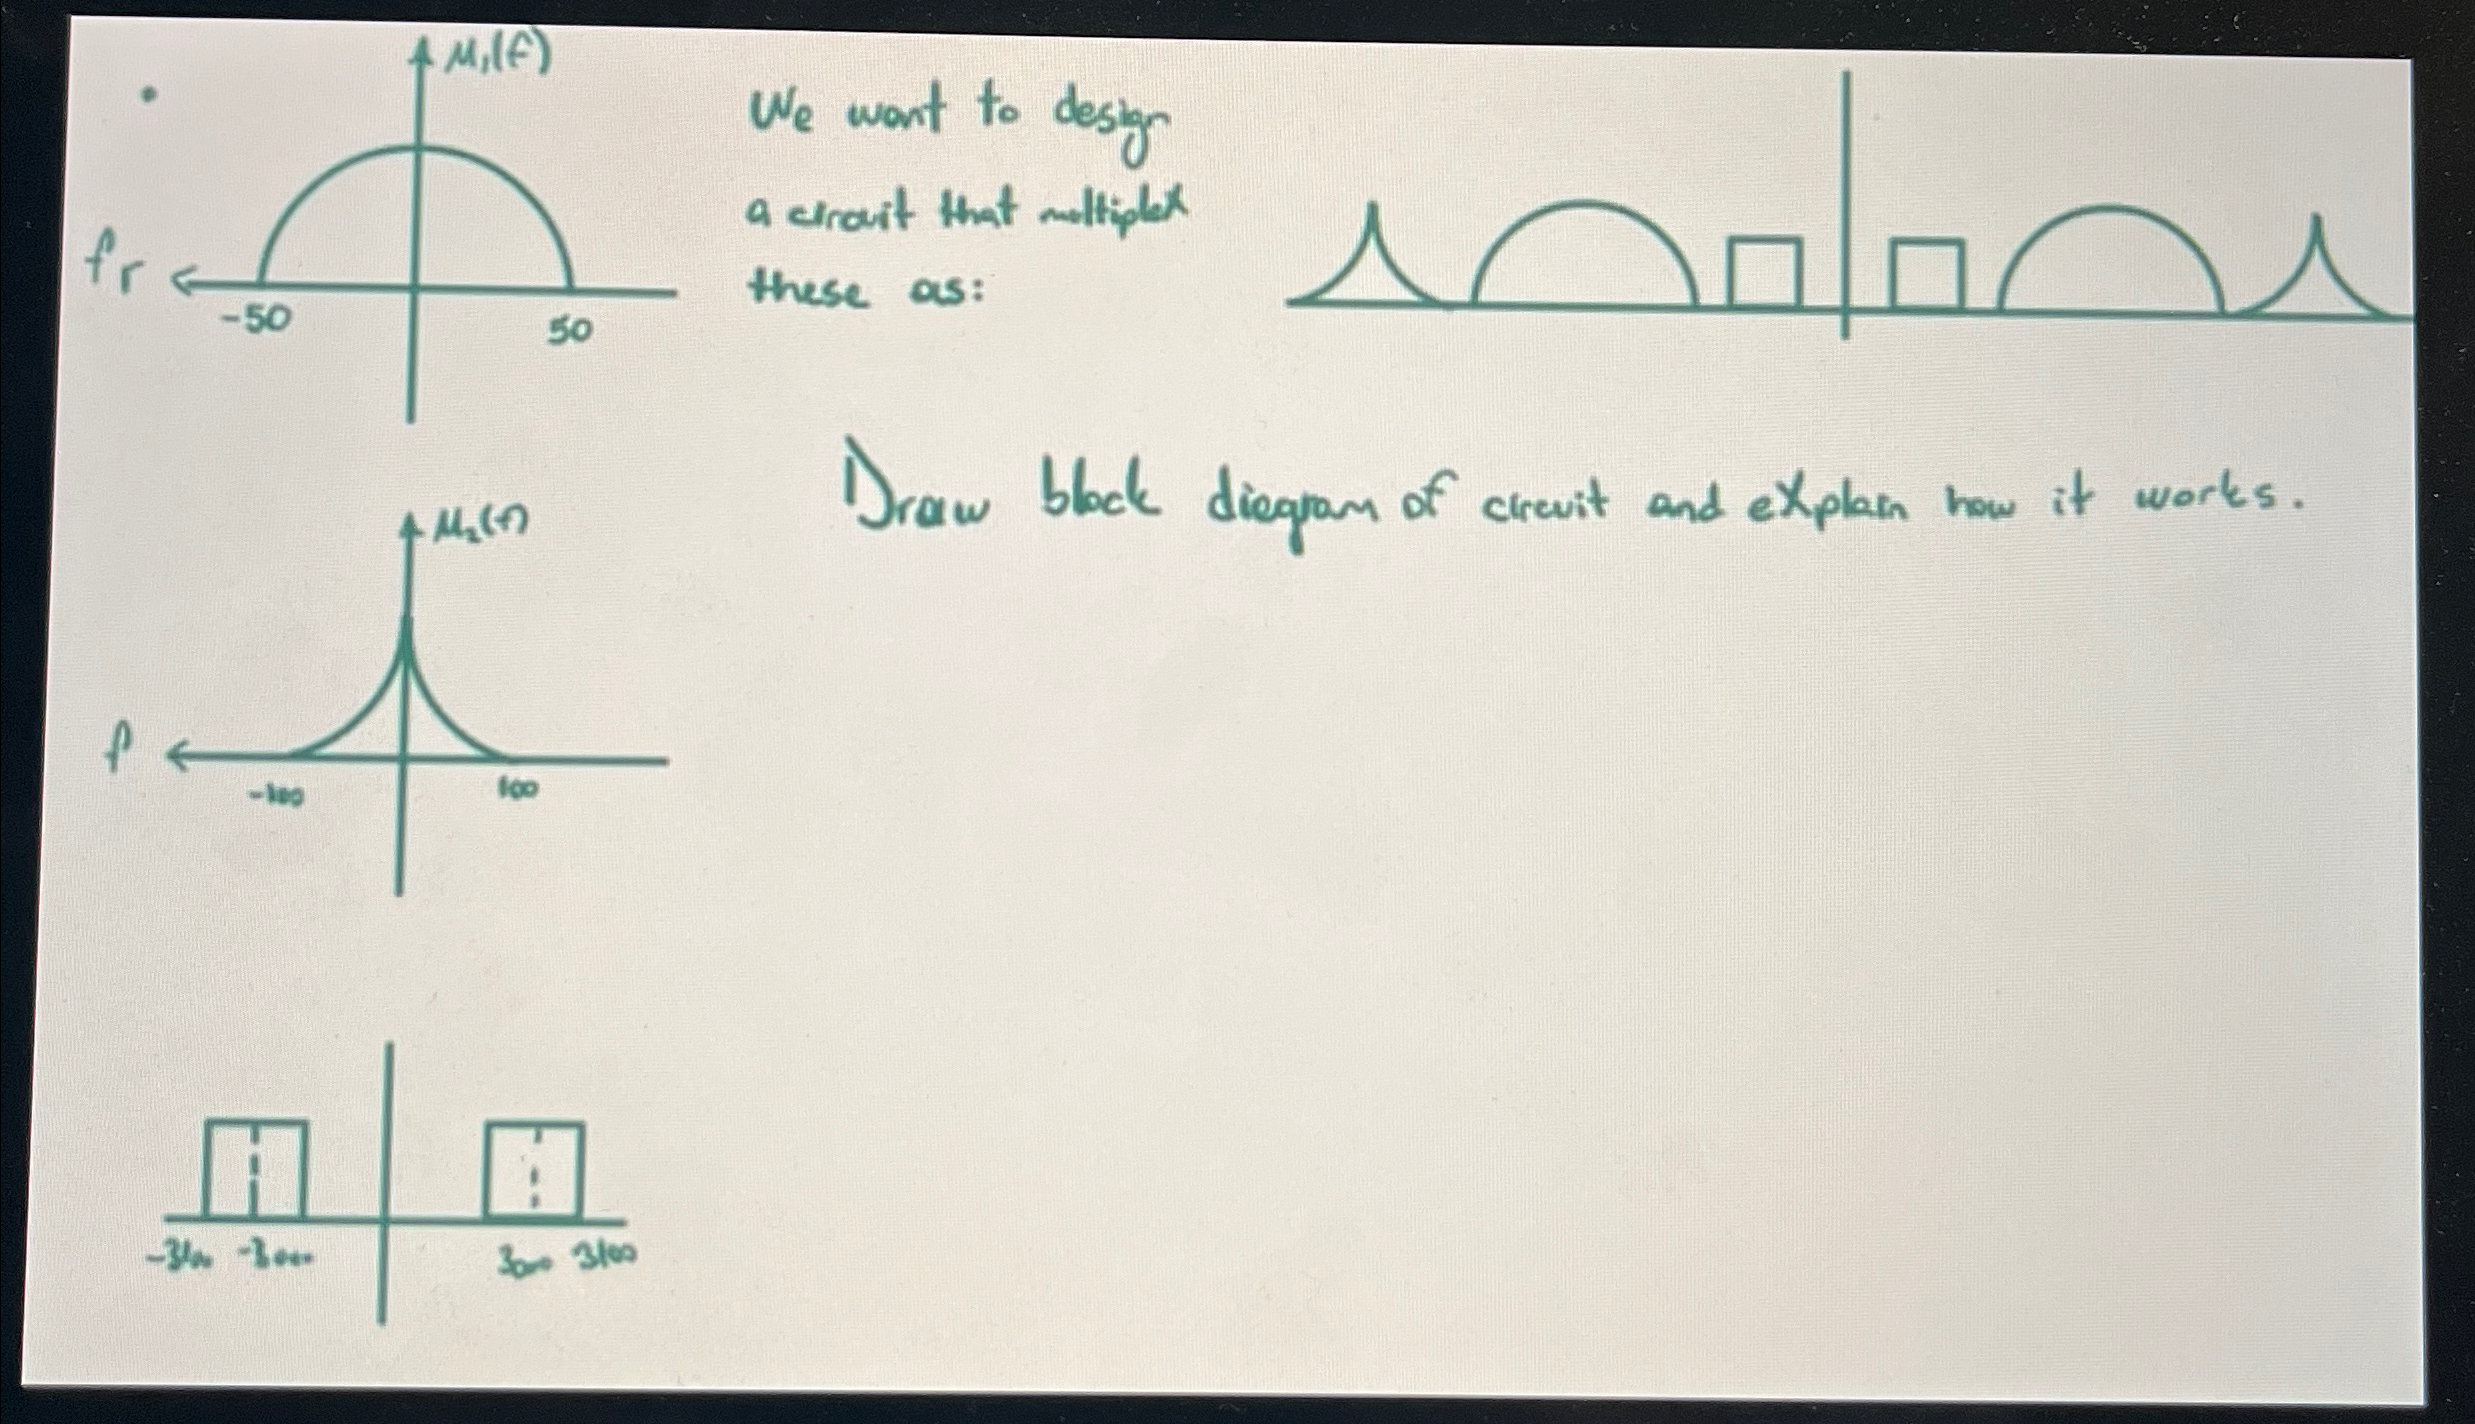 M₁(f)
We want to design
a circuit that multiplex
these as:
fr
-50
50
Draw block diagram of circuit and explain how it works.
M₂(f)
f
-100
100
-3000
3000 3100